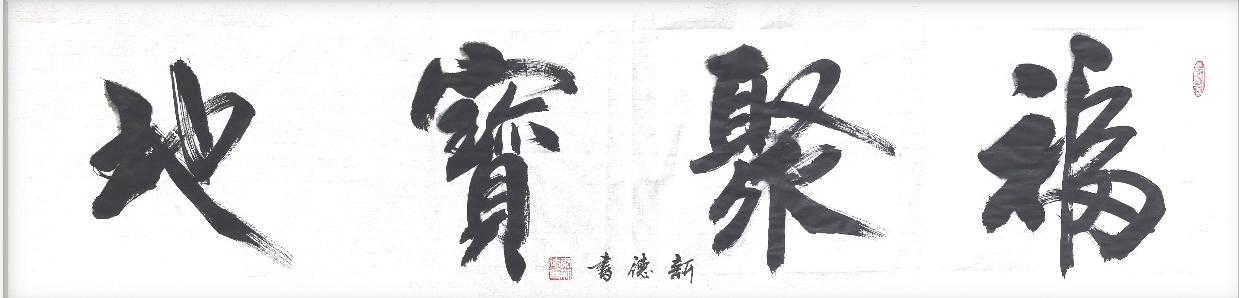 福聚寶地
新德書